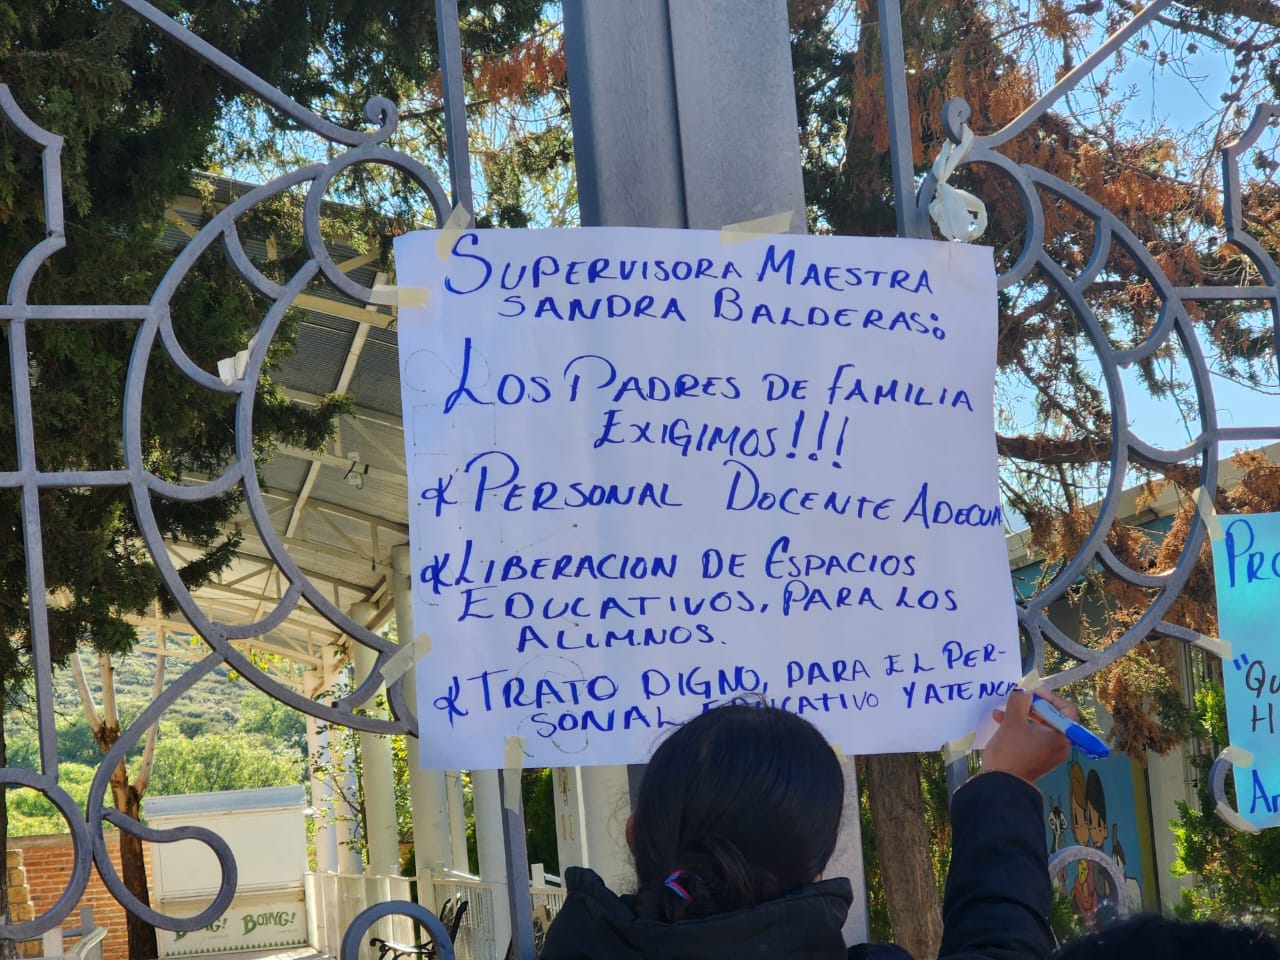 SUPERVISORA MAESTRA
SANDRA BALDERAS:
LOS PADRES DE FAMILIA
EXIGIMOS!!!
* PERSONAL DOCENTE ADECUA
* LIBERACION DE ESPACIOS
EDUCATIVOS, PARA LOS
ALUMNOS.
* TRATO DIGNO, PARA EL PER-
SONAL EDUCATIVO Y ATENCI
PRO
"QU
H
A
BOING!